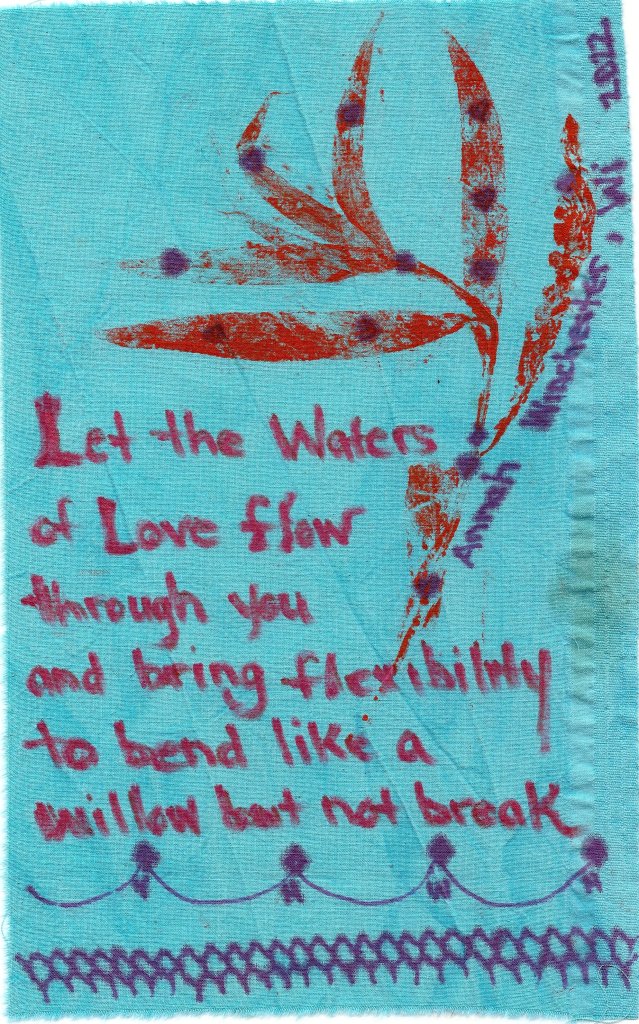 Let the Waters
of Love flow
through you
and bring flexibility
to bend like a
willow but not break
Annah Winchester, Wi 2022